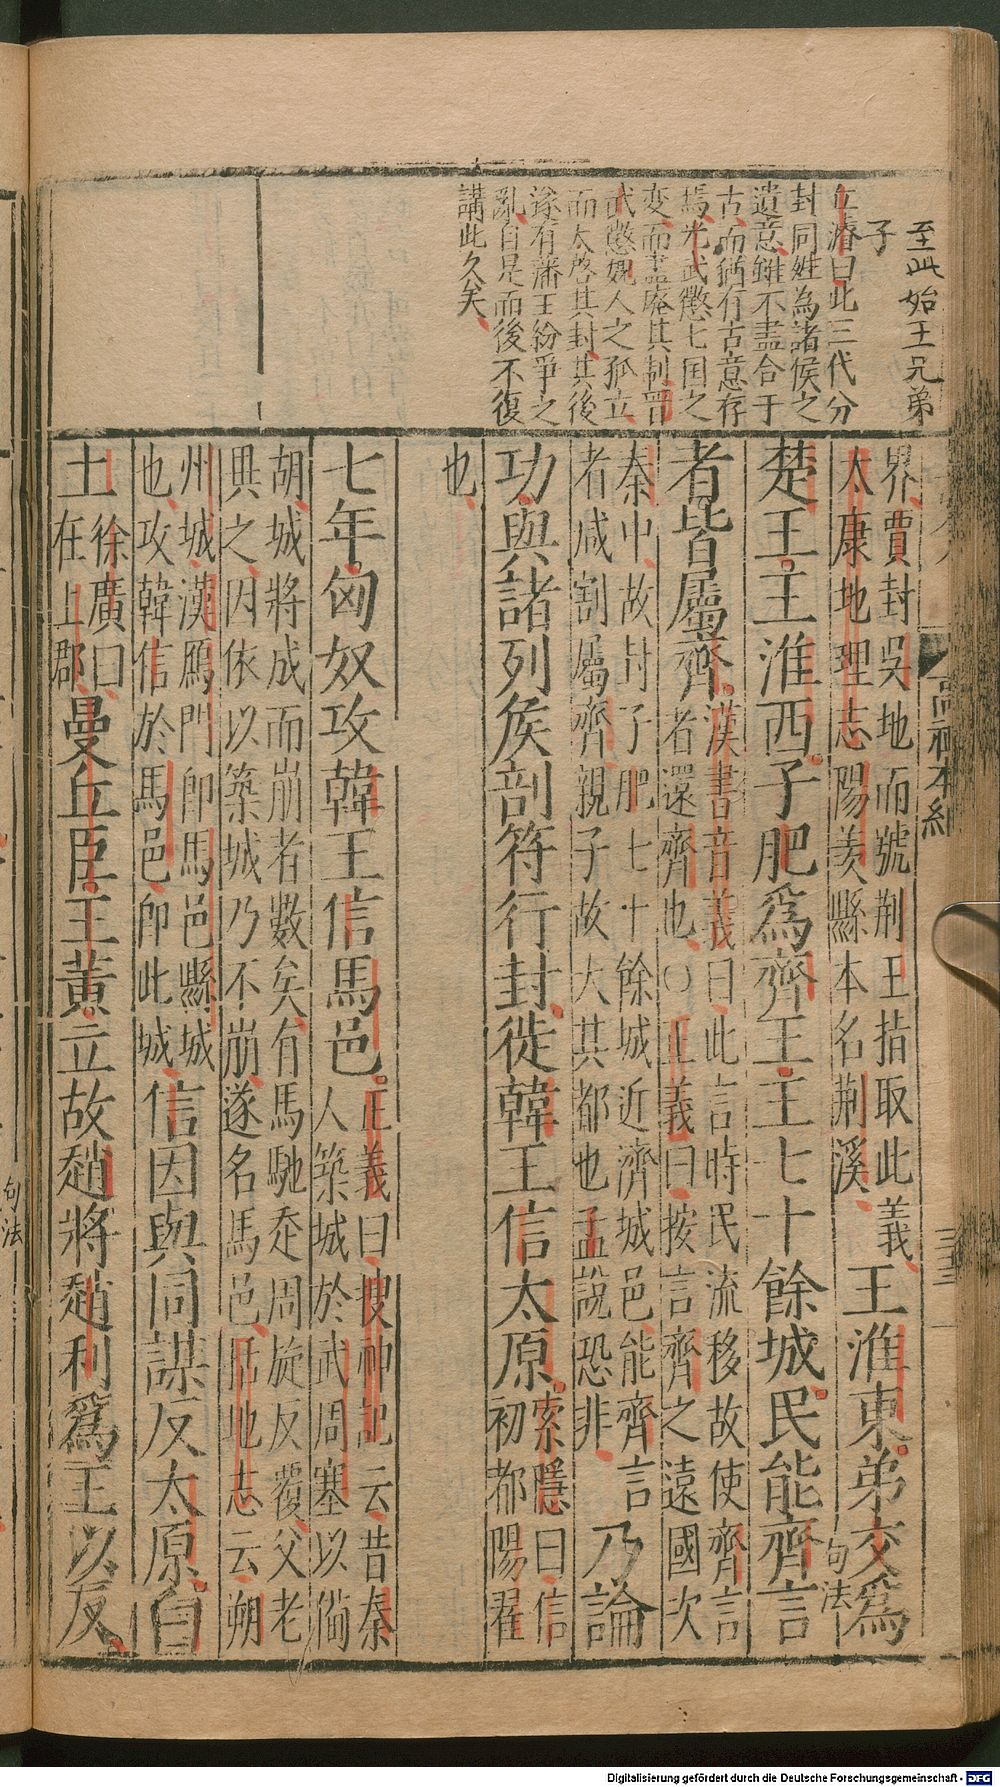 至此始王兄弟
子
丘濬曰此三代分
封同姓為諸侯之
遺意雖不盡合于
古而猶有古意存
焉光武懲七国之
变而盡廢其制晉
武懲魏人之孤立
而大啓其封其後
遂有藩王紛爭之
亂自是而後不復
講此久矣
高祖本紀
三三
界賈封吳地而號荆王指取此義
太康地理志陽羨縣本名荆溪
王淮東弟交爲
句法
楚王王淮西子肥爲齊王王七十餘城民能齊言
者皆屬齊
漢書音義曰此言時民流移故使齊言
者還齊也○正義曰按言齊之遠國次
秦中故封子肥七十餘城近濟城邑能齊言
者咸割屬齊親子故大其都也孟說恐非
乃論
功與諸列矦剖符行封徙韓王信太原
索隱曰信
初都陽翟
也
七年匈奴攻韓王信馬邑
正義曰搜神記云昔秦
人築城於武周塞以備
胡城將成而崩者數矣有馬馳走周旋反覆父老
異之因依以築城乃不崩遂名馬邑括地志云朔
州城漢鴈門卽馬邑縣城
也攻韓信於馬邑卽此城
信因與同謀反太原白
土
徐廣曰
在上郡
曼丘臣王黃立故趙將趙利爲王以反
句法
Digitalisierung gefördert durch die Deutsche Forschungsgemeinschaft - DFG